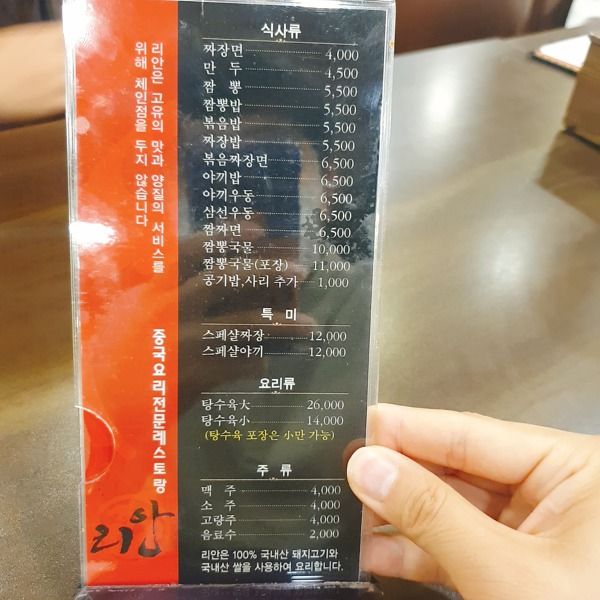 리안은 고유의 맛과 양질의 서비스를
위해 체인점을 두지 않습니다
중국요리전문레스토랑
리안
식사류
짜장면 4,000
만 두 4,500
짬 뽕 5,500
짬뽕밥 5,500
볶음밥 5,500
짜장밥 5,500
볶음짜장면 6,500
야끼밥 6,500
야끼우동 6,500
삼선우동 6,500
짬짜면 6,500
짬뽕국물 10,000
짬뽕국물(포장) 11,000
공기밥,사리 추가 1,000
특 미
스페샬짜장 12,000
스페샬야끼 12,000
요리류
탕수육大 26,000
탕수육小 14,000
(탕수육 포장은 小만 가능)
주 류
맥 주 4,000
소 주 4,000
고량주 4,000
음료수 2,000
리안은 100% 국내산 돼지고기와
국내산 쌀을 사용하여 요리합니다.